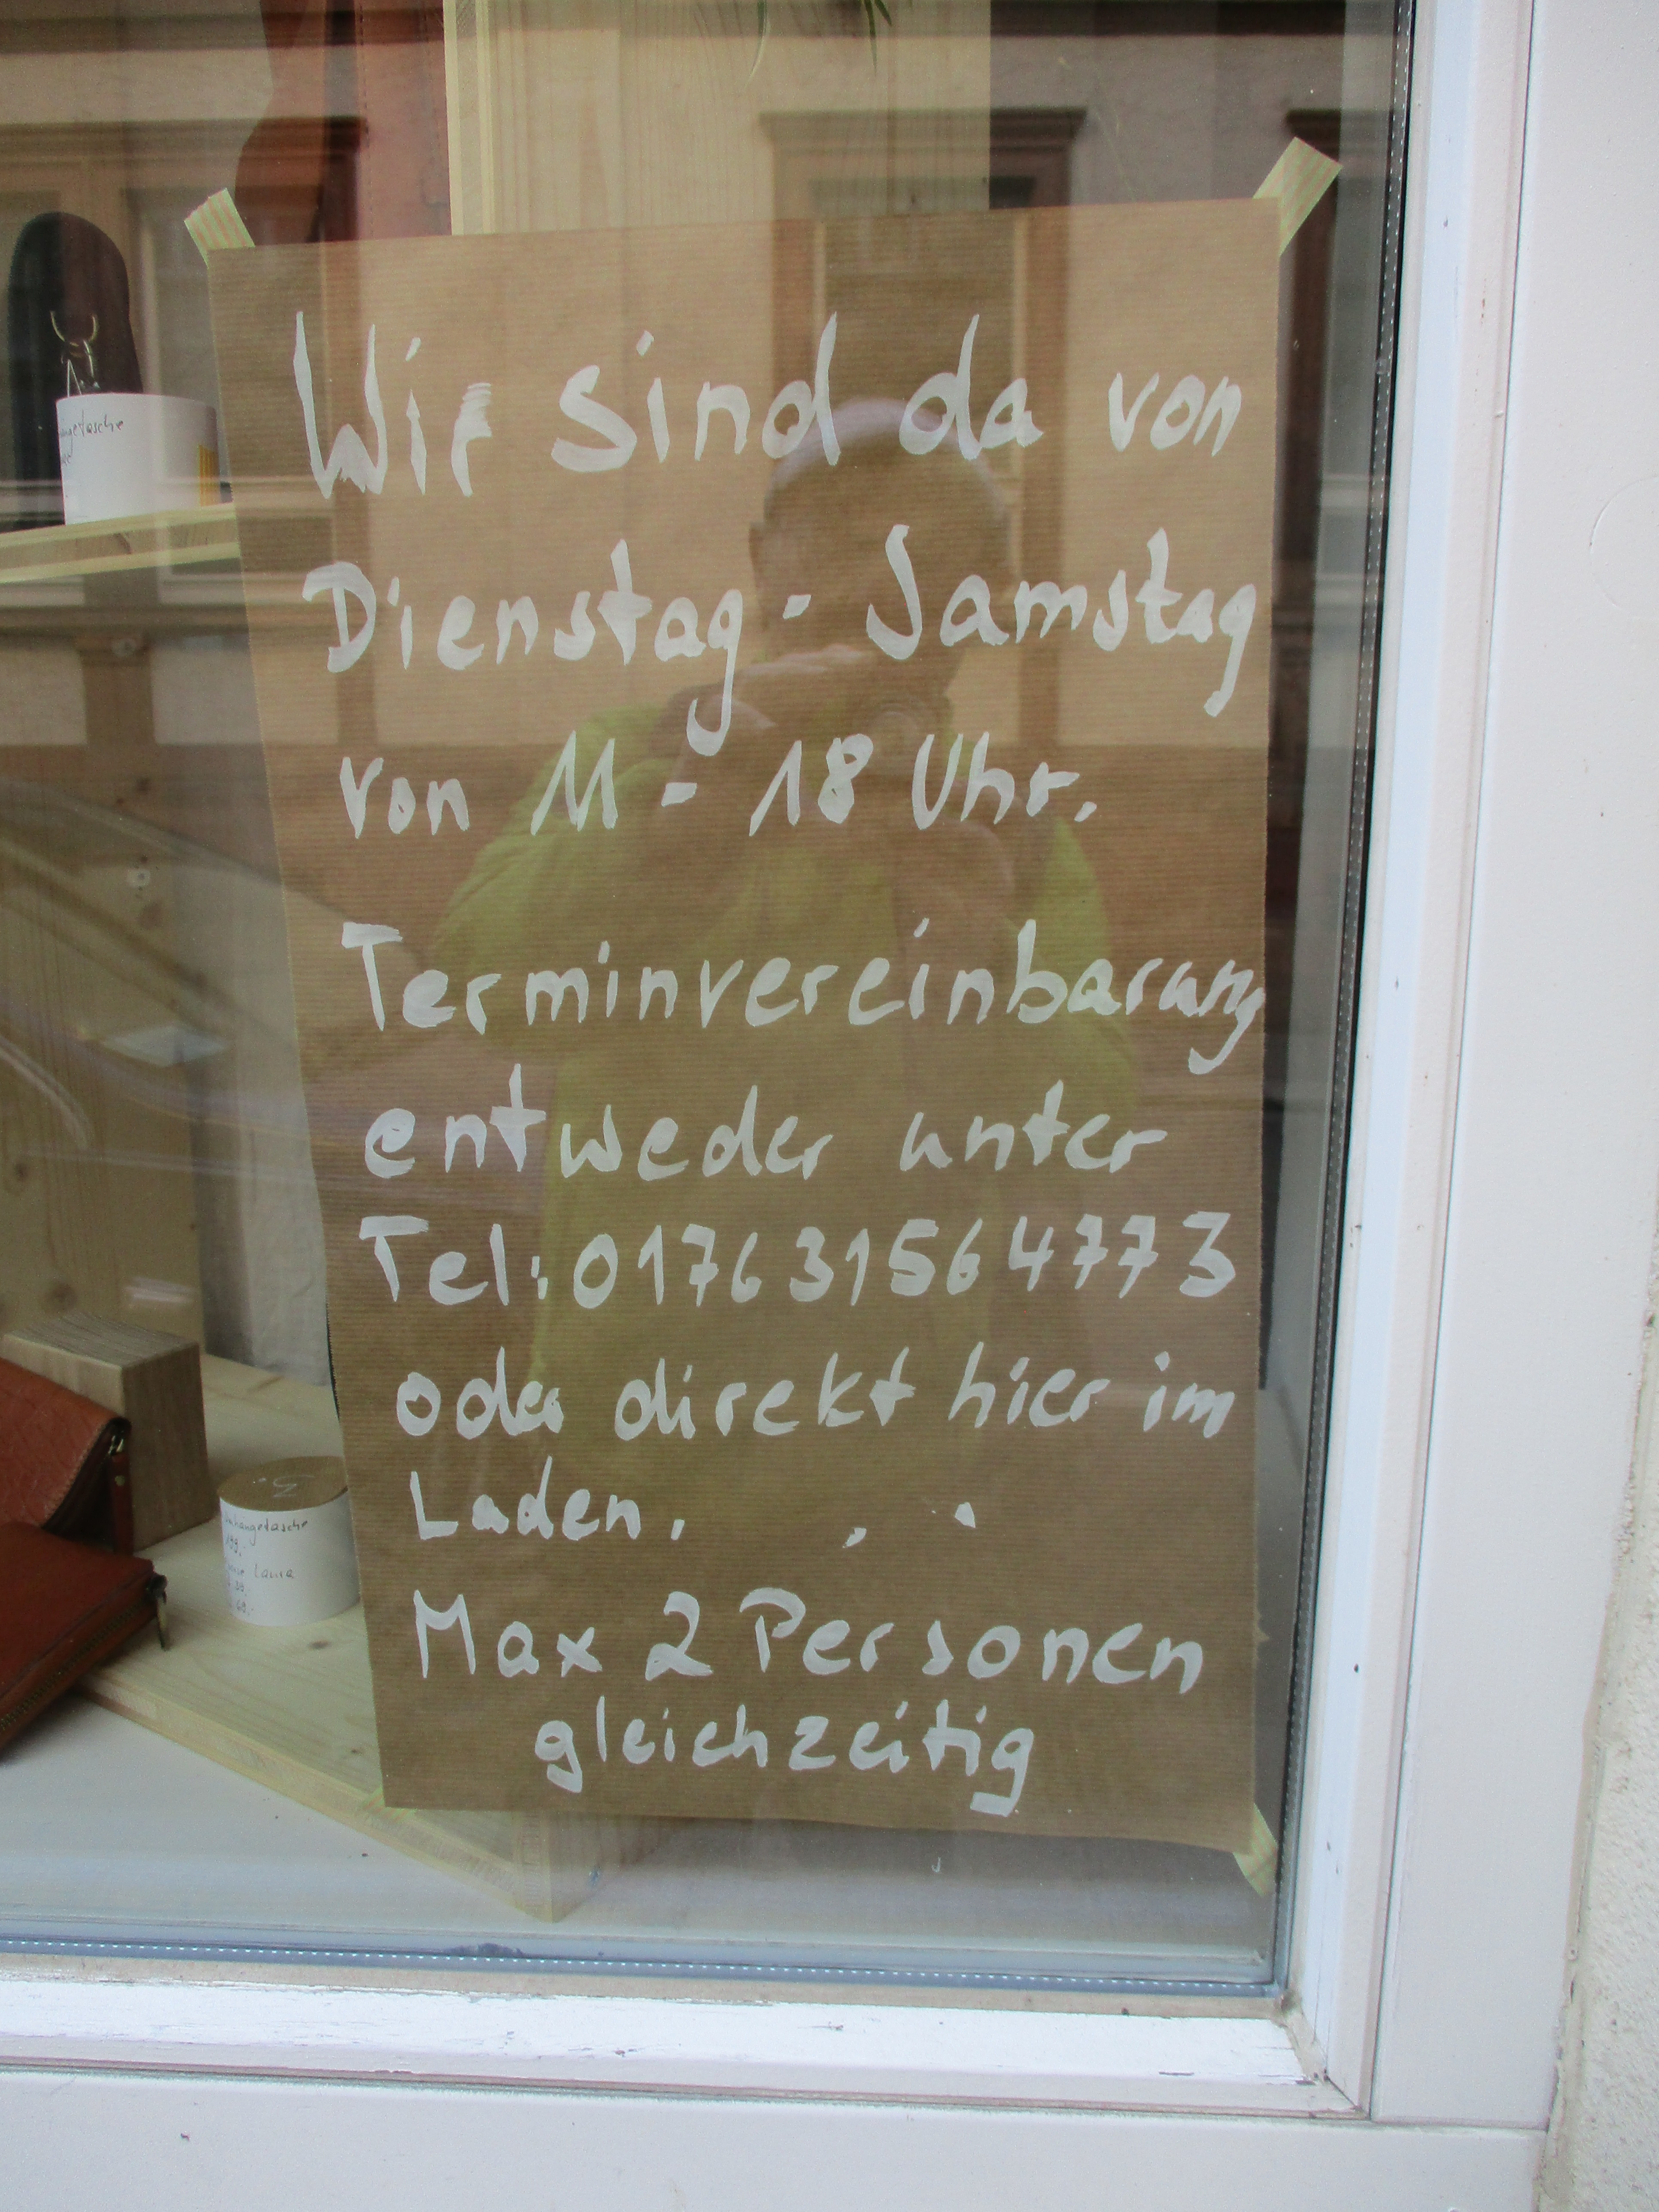 Wir sind da von
Dienstag - Samstag
von 11 - 18 Uhr.
Terminvereinbarung
entweder unter
Tel: 0176 31564773
oder direkt hier im
Laden.
Max 2 Personen
gleichzeitig
Laura